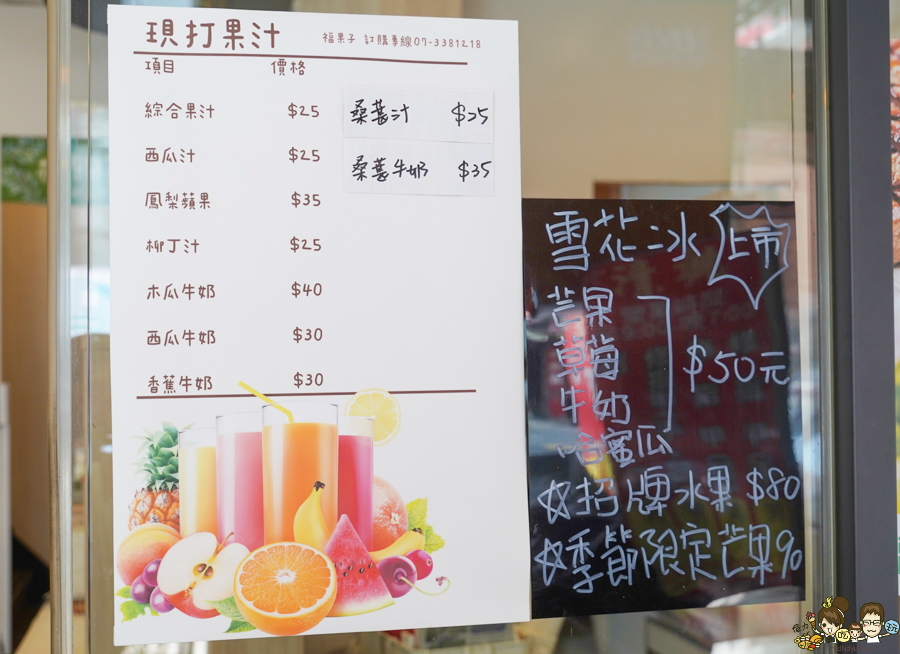 現打果汁
福果子 訂購專線07-3381218
項目 價格
綜合果汁 $25
西瓜汁 $25
鳳梨蘋果 $35
柳丁汁 $25
木瓜牛奶 $40
西瓜牛奶 $30
香蕉牛奶 $30
桑葚汁 $25
桑葚牛奶 $35
雪花冰 上市
芒果
草莓
牛奶
哈蜜瓜
$50元
☆招牌水果 $80
☆季節限定芒果90